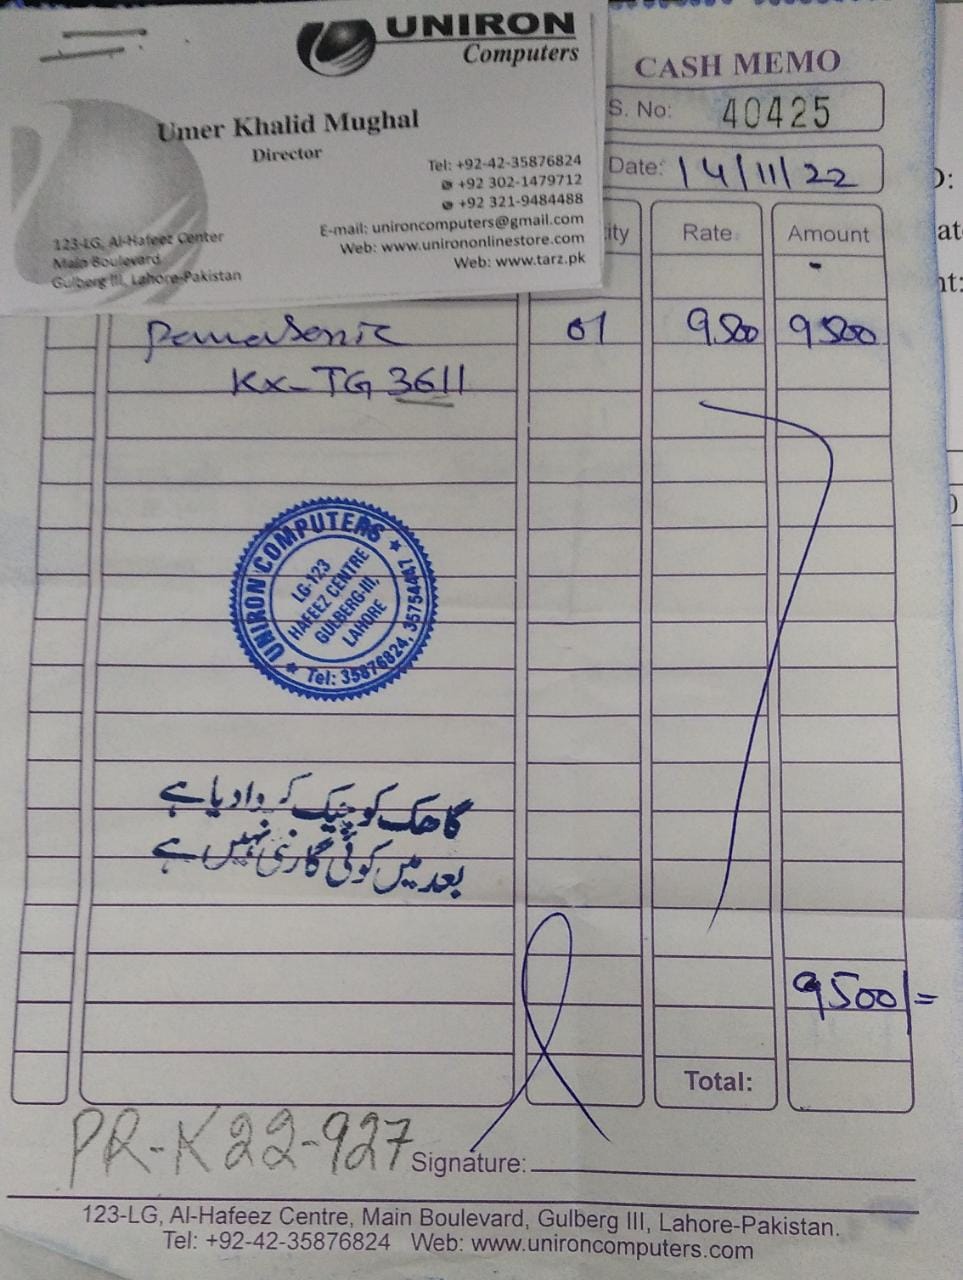 UNIRON
Computers
Umer Khalid Mughal
Director
Tel: +92-42-35876824
+92 302-1479712
+92 321-9484488
E-mail: unironcomputers@gmail.com
Web: www.unirononlinestore.com
Web: www.tarz.pk
123-LG, Al-Hafeez Center
Main Boulevard
Gulberg III, Lahore-Pakistan
CASH MEMO
S. No: 40425
Date: 14/11/22
ity Rate Amount
Panasonic 01 9500 9500
KX-TG 3611
UNIRON COMPUTERS
LG-123
HAFEEZ CENTRE
GULBERG-III,
LAHORE
Tel: 35876824, 35754441
گاھک کو چیک کروا دیا ہے
بعد میں کوئی گارنٹی نہیں ہے
9500/=
Total:
PR-K22-927
Signature:
123-LG, Al-Hafeez Centre, Main Boulevard, Gulberg III, Lahore-Pakistan.
Tel: +92-42-35876824 Web: www.unironcomputers.com